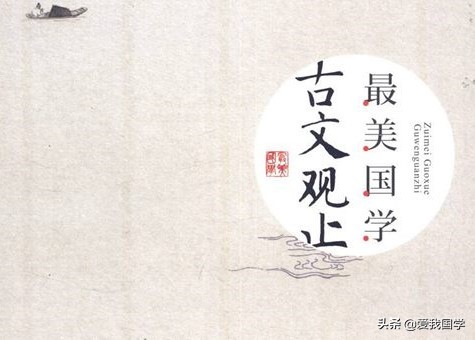 最美国学
Zuimei Guoxue
Guwenguanzhi
古文观止
头条 @爱我国学